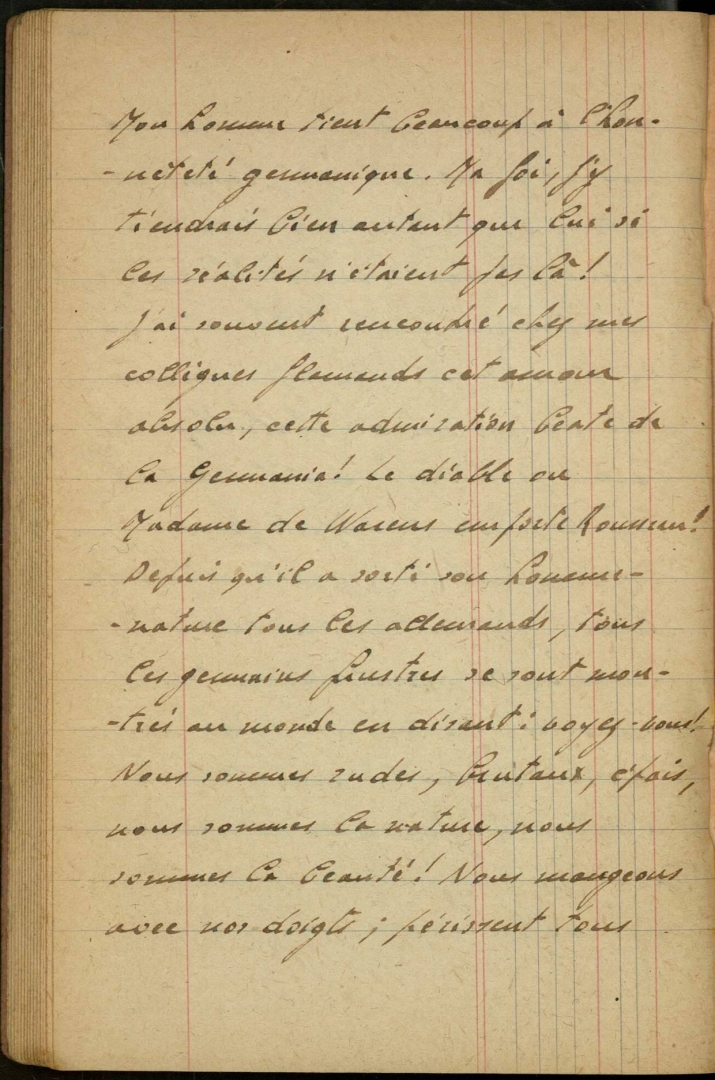 Mon homme tient beaucoup à l'hon-
-nêteté germanique. Ma foi, j'y
tiendrais bien autant que lui si
les réalités n'étaient pas là!
J'ai souvent rencontré chez mes
collègues flamands cet amour
absolu, cette admiration béate de
la Germania! Le diable ou
Madame de Warens emporte Rousseau!
Depuis qu'il a sorti son homme-
-nature tous les allemands, tous
les germains frustres se sont mon-
-trés au monde en disant: voyez-vous!
Nous sommes rudes, brutaux, épais,
nous sommes la nature, nous
sommes la beauté! Nous mangeons
avec nos doigts; périssent tous